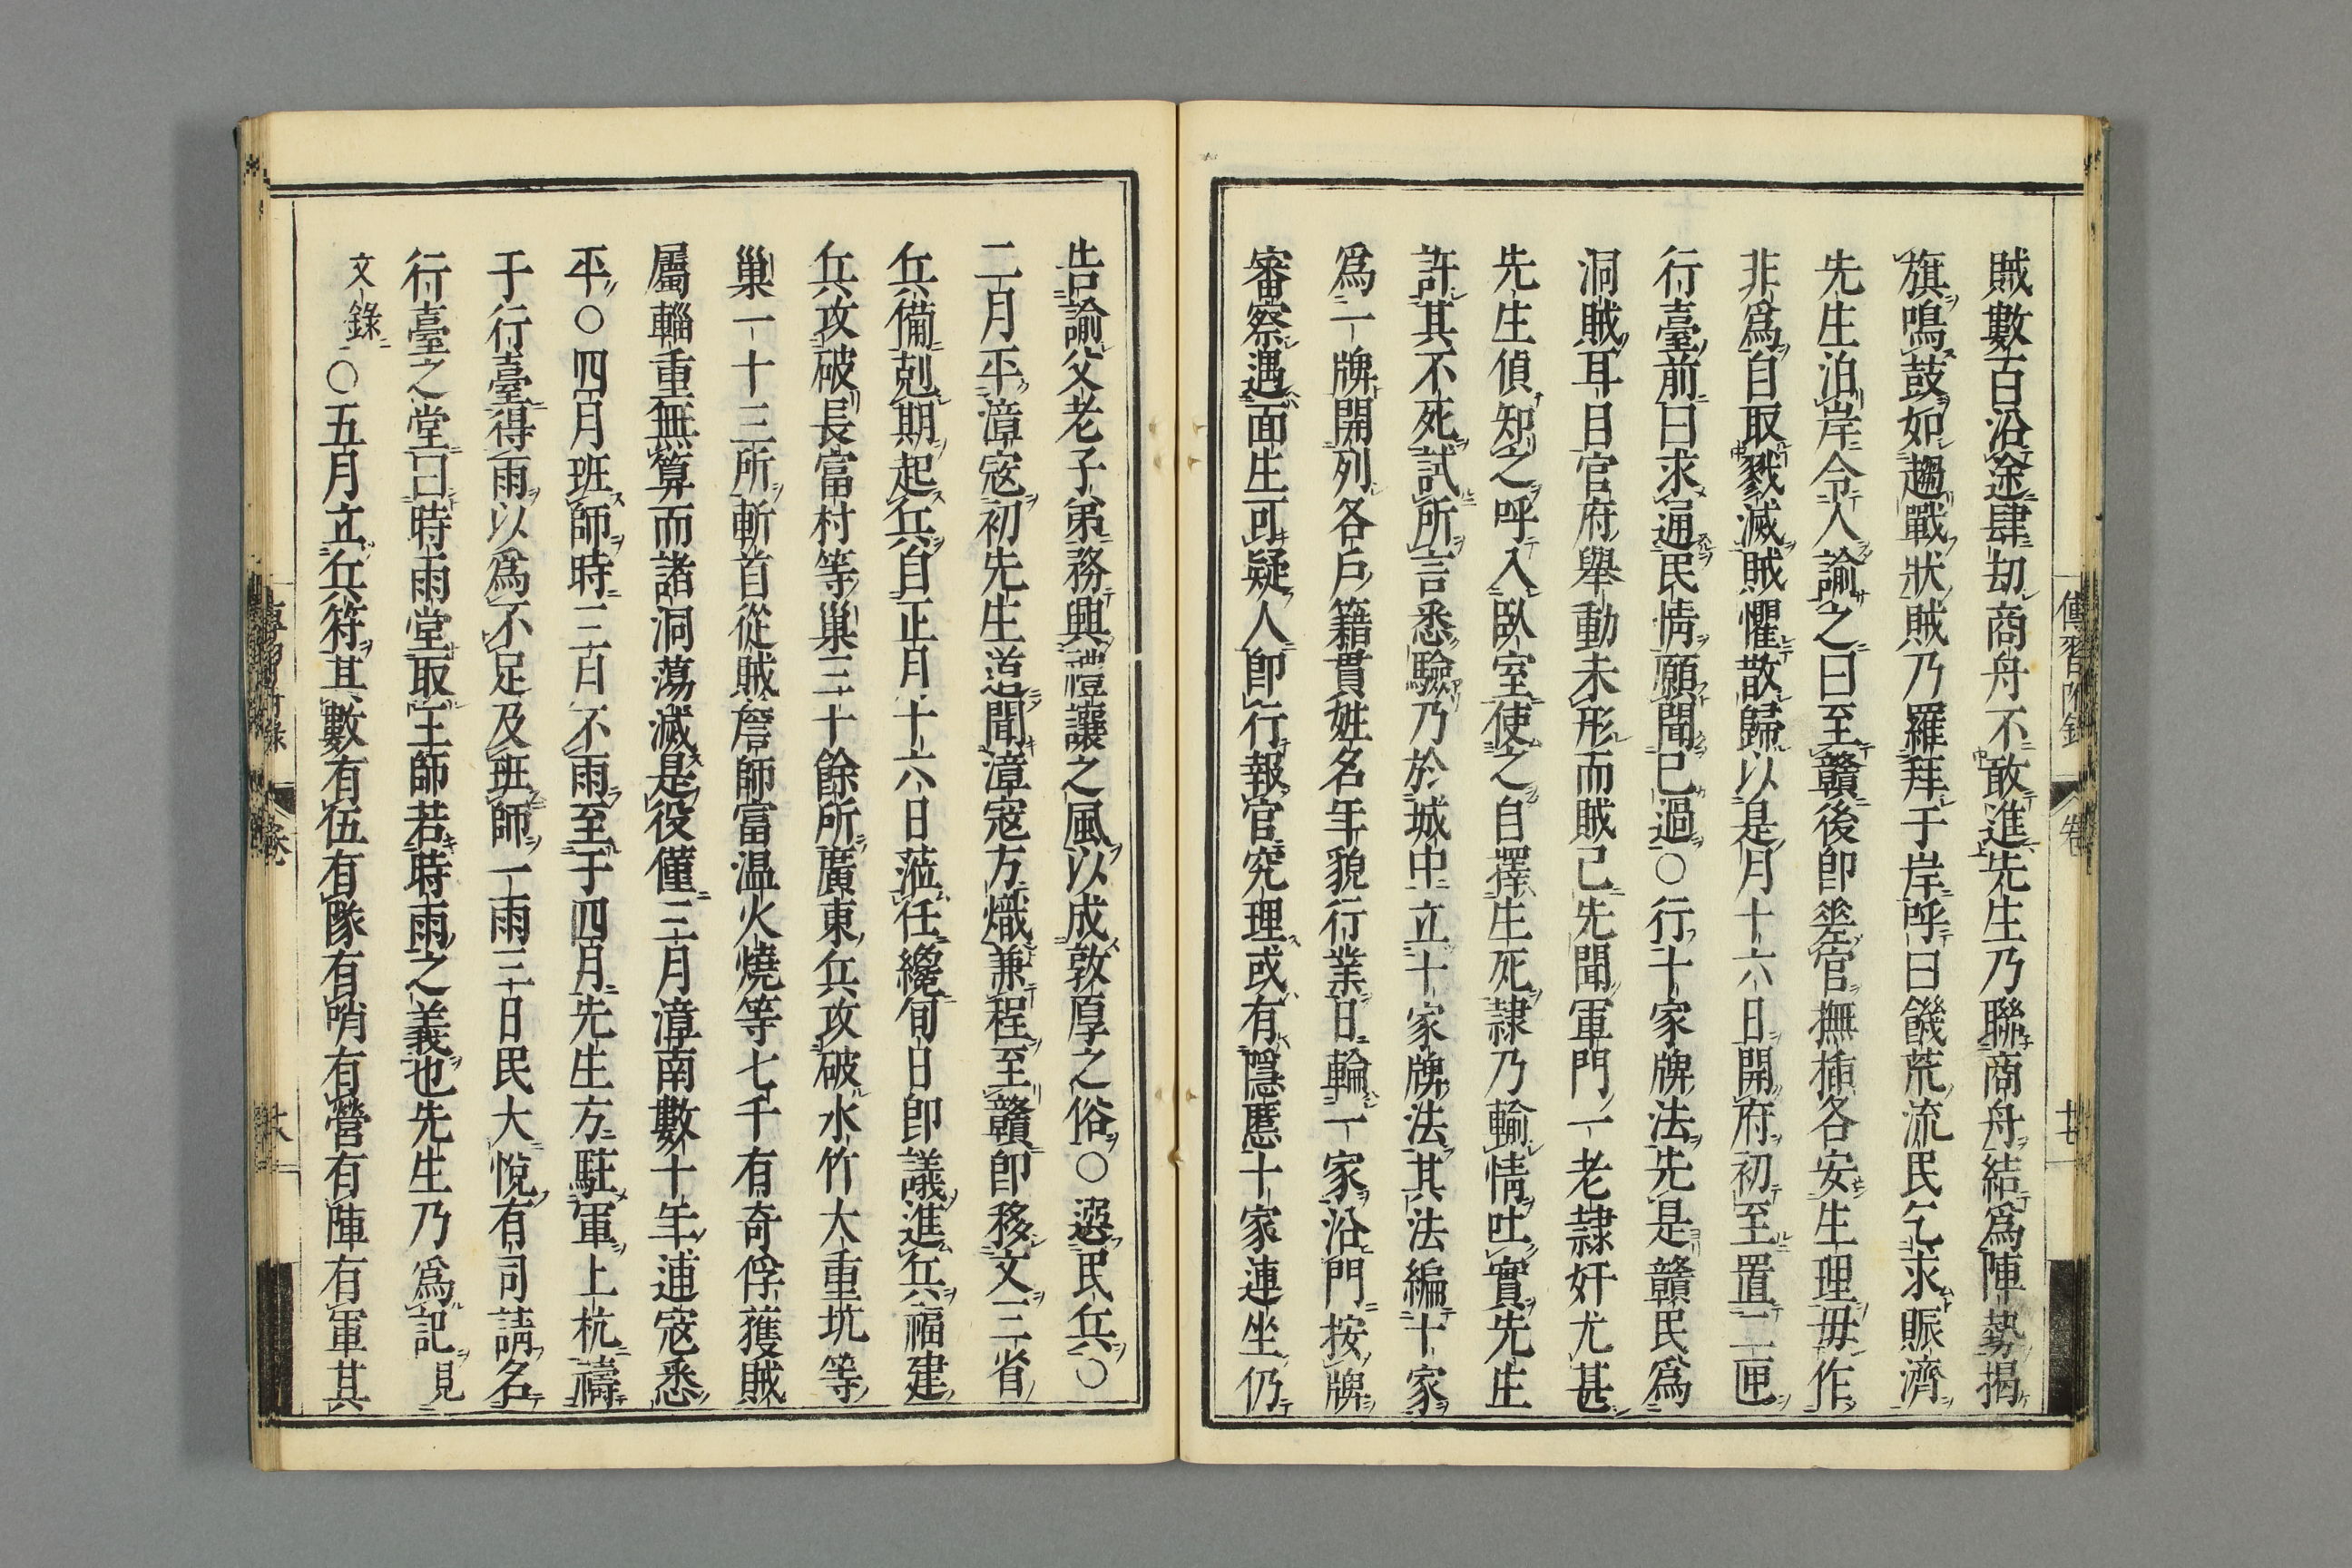 賊數百沿途肆劫商舟不敢進先生乃聯商舟結爲陣勢揚
旗鳴鼓如趨戰狀賊乃羅拜于岸呼曰饑荒流民乞求賑濟
先生泊岸令人諭之曰至贛後即差官撫揷各安生理毋作
非爲自取戮滅賊懼散歸以是月十六日開府初至置二匣
行臺前曰求通民情願聞己過○行十家牌法先是贛民爲
洞賊耳目官府舉動未形而賊已先聞軍門一老隷奸尤甚
先生偵知之呼入臥室使之自擇生死隷乃輸情吐實先生
許其不死試所言悉驗乃於城中立十家牌法其法編十家
爲一牌開列各戶籍貫姓名年貌行業日輪一家沿門按牌
審察遇面生可疑人即行報官究理或有隱慝十家連坐仍
傳習附錄
卷
廿七
告諭父老子弟務興禮讓之風以成敦厚之俗○選民兵○
二月平漳寇初先生道聞漳寇方熾兼程至贛即移文三省
兵備剋期起兵自正月十六日蒞任纔旬日即議進兵福建
兵攻破長富村等巢三十餘所廣東兵攻破水竹大重坑等
巢一十三所斬首從賊詹師富温火燒等七千有奇俘獲賊
屬輜重無算而諸洞蕩滅是役僅三月漳南數十年逋寇悉
平○四月班師時三月不雨至于四月先生方駐軍上杭禱
于行臺得雨以爲不足及班師一雨三日民大悅有司請名
行臺之堂曰時雨堂取王師若時雨之義也先生乃爲記見
文錄○五月立兵符其數有伍有隊有哨有營有陣有軍其